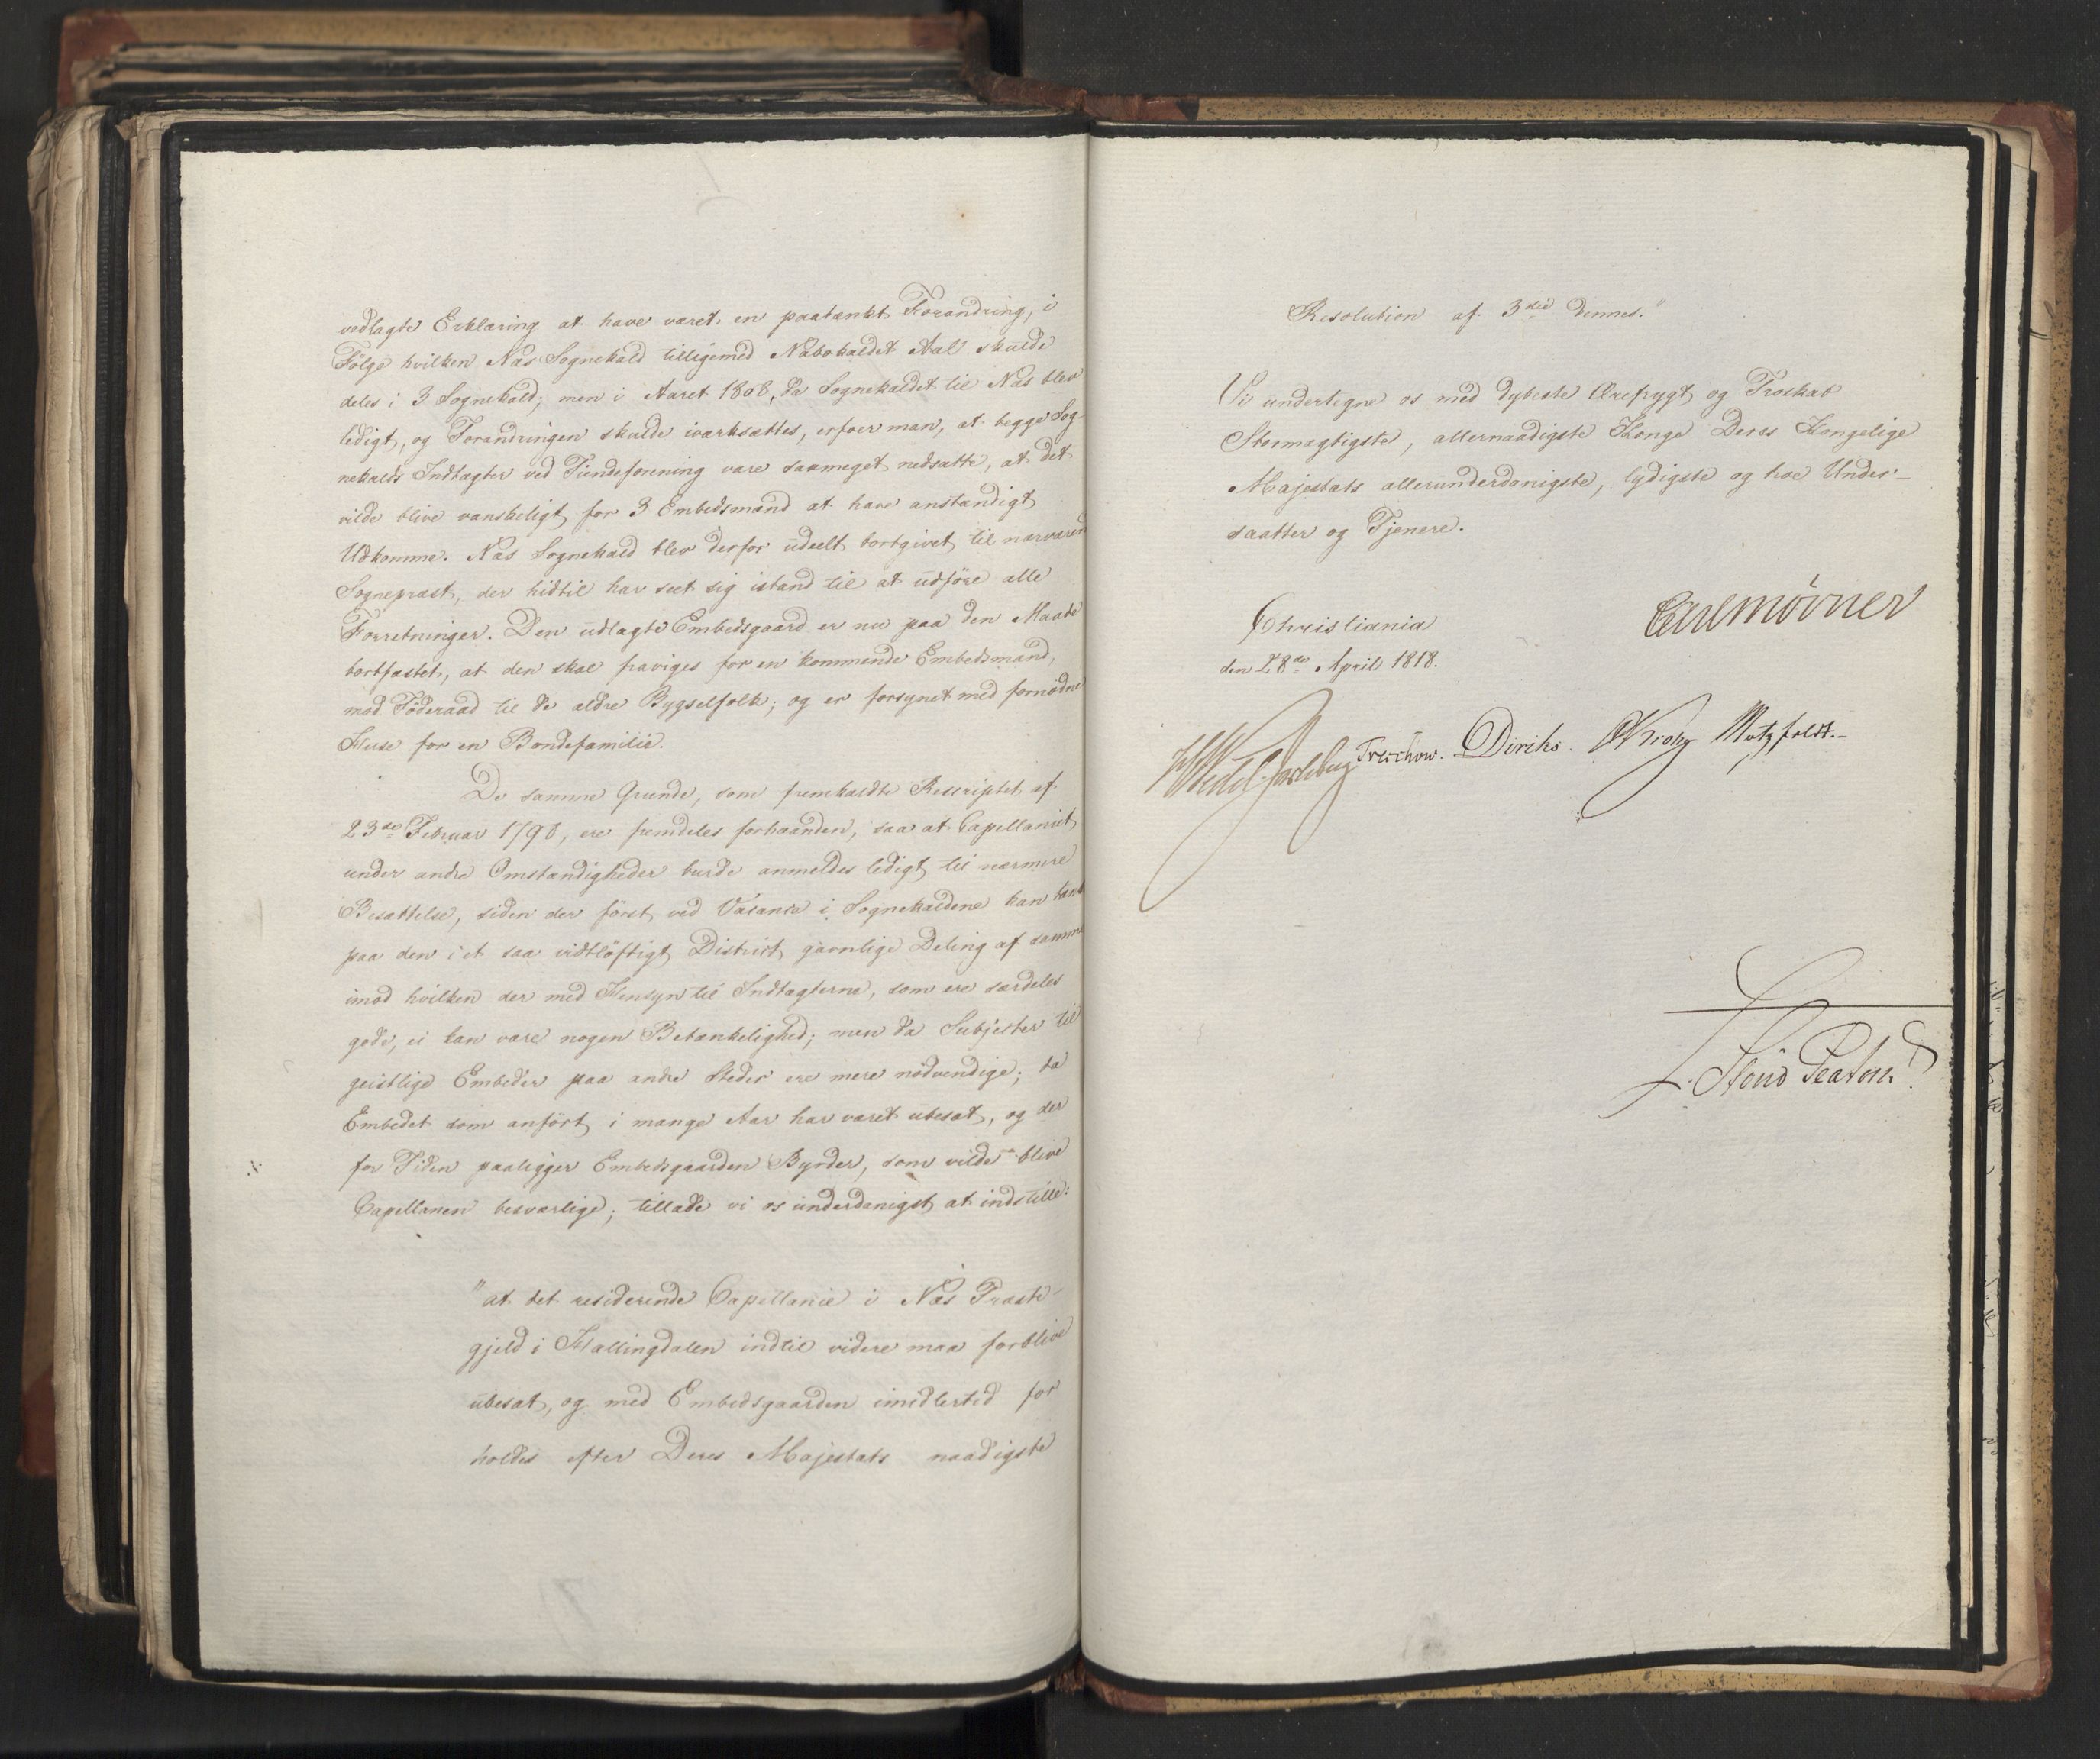 vedlagte Erklæring at have været en paatænkt Forandring, i
Følge hvilken Næs Sognekald tilligemed Nabokaldet Aal skulde
deles i 3 Sognekald; men i Aaret 1808, da Sognekaldet til Næs blev
ledigt, og Forandringen skulde iværksættes, erfoer man, at begge Sog-
nekalds Indtægter ved Tiendeforening vare saameget nedsatte, at det
vilde blive vanskeligt for 3 Embedsmænd at have anstændigt
Udkomme. Næs Sognekald blev derfor udeelt bortgivet til nærværen
Sognepræst, der hidtil har seet sig istand til at udføre alle
Forretninger. Den udlagte Embedsgaard er nu paa den Maade
bortfæstet, at den skal fraviges for en kommende Embedsmand,
mod Føderaad til de ældre Bygselfolk; og er forsynet med fornødne
Huse for en Bondefamilie.
De samme Grunde, som fremkaldte Rescriptet af
23de Februar 1798, ere fremdeles forhaanden, saa at Capellaniet
under andre Omstændigheder burde anmeldes ledigt til nærmere
Besættelse, siden der først ved Vacance i Sognekaldene kan tænk
paa den i et saa vidtløftigt District gavnlige Deling af samme
imod hvilken der med Hensyn til Indtægterne, som ere særdeles
gode, ei kan være nogen Betænkelighed; men da Subjecter til
geistlige Embeder paa andre Steder ere mere nødvendige; da
Embedet som anført i mange Aar har været ubesat, og der
for Tiden paaligger Embedsgaarden Byrder, som vilde blive
Capellanen besværlige; tillade vi os underdanigst at indstille:
"at det residerende Capellanie i Næs Præste-
gjeld i Hallingdalen indtil videre maa forblive
ubesat, og med Embedsgaarden imidlertid for
holdes efter Deres Majestæts naadigste
Resolution af 3die dennes."
Vi undertegne os med dybeste Ærefrygt og Troskab
Stormægtigste, allernaadigste Konge Deres Kongelige
Majestæts allerunderdanigste, lydigste og troe Under-
saatter og Tjenere.
Christiania
den 28de April 1818.
Carl Mörner
HWedel Jarlsberg Treschow. Diriks. Krohg Motzfeldt.